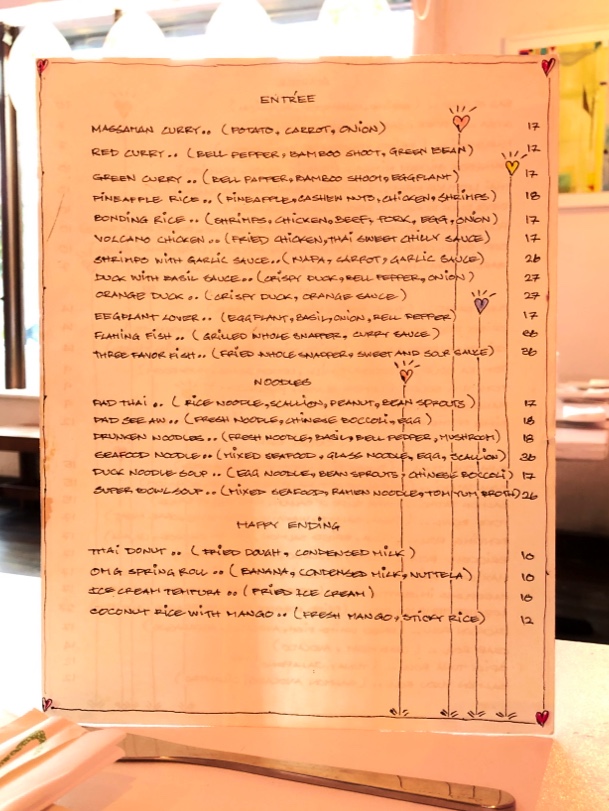 ENTRÉE
MASSAMAN CURRY.. (POTATO, CARROT, ONION) 17
RED CURRY.. (BELL PEPPER, BAMBOO SHOOT, GREEN BEAN) 17
GREEN CURRY.. (BELL PAPPER, BAMBOO SHOOT, EGGPLANT) 17
PINEAPPLE RICE.. (PINEAPPLE, CASHEW NUTS, CHICKEN, SHRIMPS) 18
BONDING RICE.. (SHRIMPS, CHICKEN, BEEF, PORK, EGG, ONION) 17
VOLCANO CHICKEN.. (FRIED CHICKEN, THAI SWEET CHILLY SAUCE) 17
SHRIMPS WITH GARLIC SAUCE.. (NAPA, CARROT, GARLIC SAUCE) 26
DUCK WITH BASIL SAUCE.. (CRISPY DUCK, BELL PEPPER, ONION) 27
ORANGE DUCK.. (CRISPY DUCK, ORANGE SAUCE) 27
EEGPLANT LOVER.. (EGGPLANT, BASIL, ONION, BELL PEPPER) 17
FLAMING FISH.. (GRILLED WHOLE SNAPPER, CURRY SAUCE)
THREE FAVOR FISH.. (FRIED WHOLE SNAPPER, SWEET AND SOUR SAUCE) 36
NOODLES
PAD THAI.. (RICE NOODLE, SCALLION, PEANUT, BEAN SPROUTS) 17
PAD SEE AW.. (FRESH NOODLE, CHINESE BOCCOLI, EGG) 18
DRUNKEN NOODLES.. (FRESH NOODLE, BASIL, BELL PEPPER, MUSHROOM) 18
SEAFOOD NOODLE.. (MIXED SEAFOOD, GLASS NOODLE, EGG, SCALLION) 36
DUCK NOODLE SOUP.. (EGG NOODLE, BEAN SPROUTS, CHINESE BOCCOLI) 17
SUPER BOWL SOUP.. (MIXED SEAFOOD, RAMEN NOODLE, TOM YUM BROTH) 26
HAPPY ENDING
THAI DONUT.. (FRIED DOUGH, CONDENSED MILK) 10
OMG SPRING ROLL.. (BANANA, CONDENSED MILK, NUTTELA) 10
ICE CREAM TEMPURA.. (FRIED ICE CREAM) 10
COCONUT RICE WITH MANGO.. (FRESH MANGO, STICKY RICE) 12